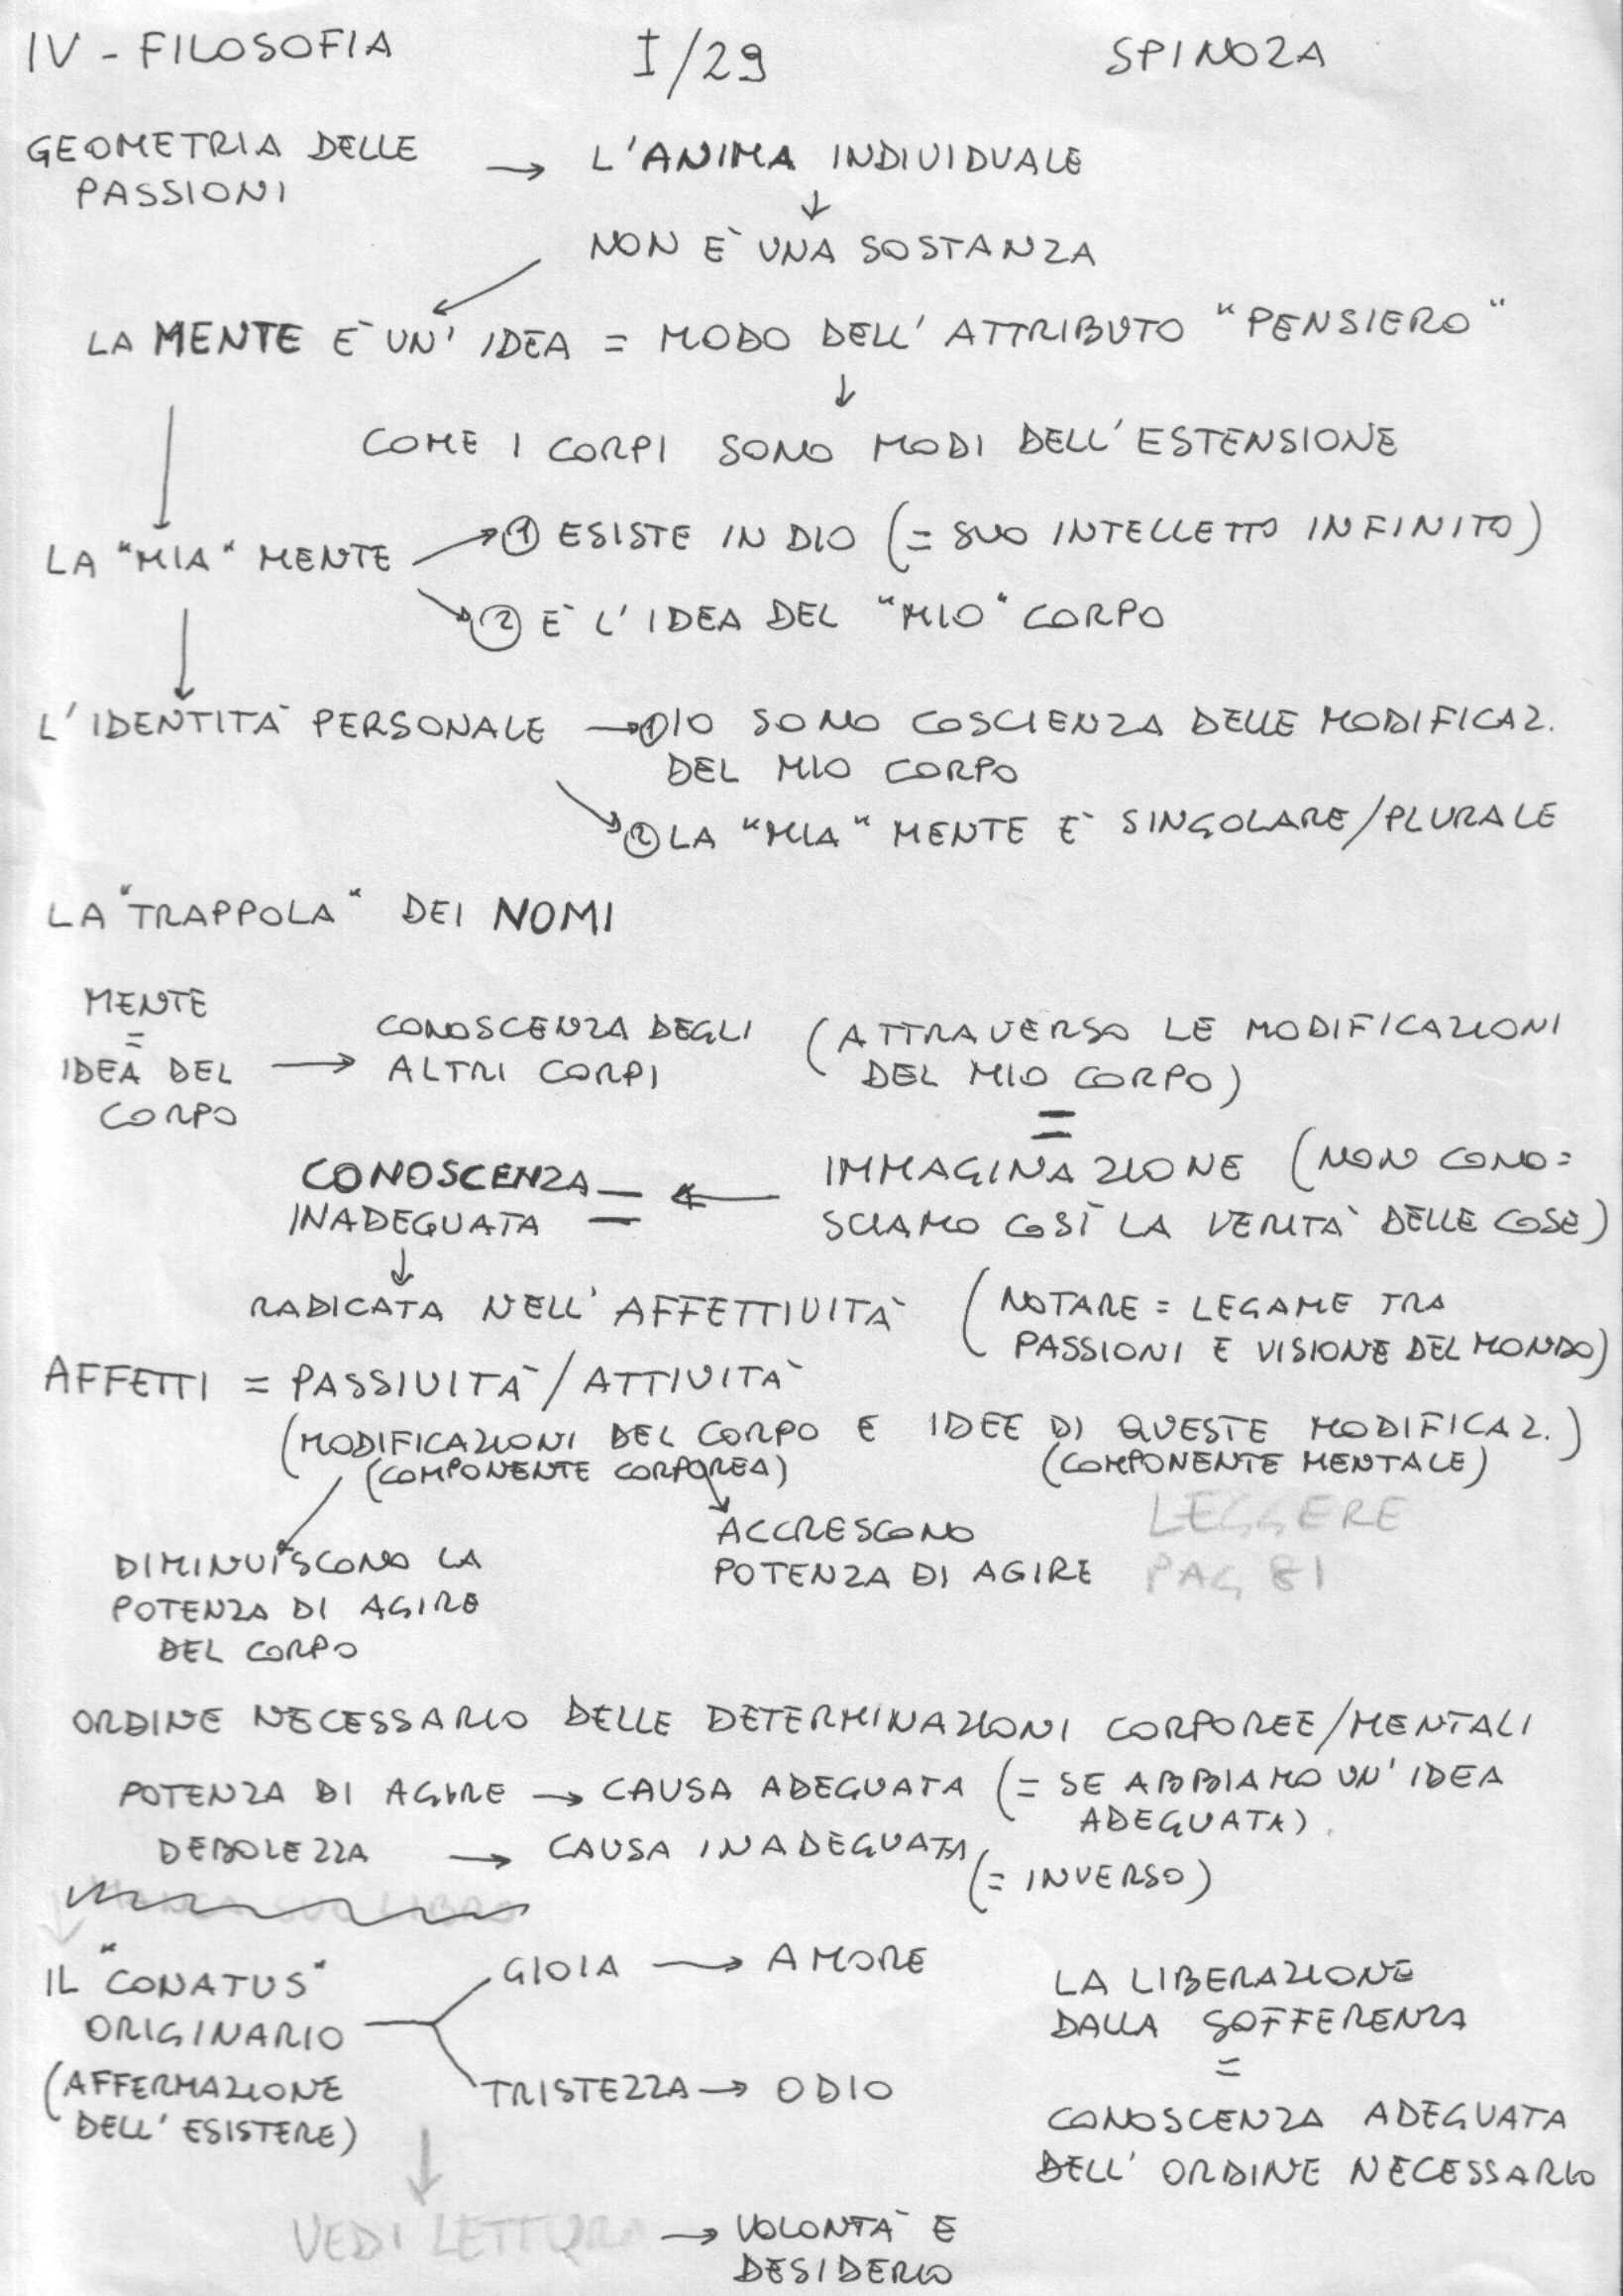 IV - FILOSOFIA
I/29
SPINOZA
GEOMETRIA DELLE
PASSIONI
→ L'ANIMA INDIVIDUALE
↓
NON È UNA SOSTANZA
LA MENTE È UN' IDEA = MODO DELL' ATTRIBUTO "PENSIERO"
↓
COME I CORPI SONO MODI DELL'ESTENSIONE
LA "MIA" MENTE
→ ① ESISTE IN DIO (= SUO INTELLETTO INFINITO)
② È L'IDEA DEL "MIO" CORPO
L'IDENTITÀ PERSONALE
→ ① IO SONO COSCIENZA DELLE MODIFICAZ.
DEL MIO CORPO
② LA "MIA" MENTE È SINGOLARE/PLURALE
LA "TRAPPOLA" DEI NOMI
MENTE
=
IDEA DEL
CORPO
→ CONOSCENZA DEGLI
ALTRI CORPI
(ATTRAVERSO LE MODIFICAZIONI
DEL MIO CORPO)
=
IMMAGINAZIONE (NON CONO=
SCIAMO COSÌ LA VERITÀ DELLE COSE)
CONOSCENZA
INADEGUATA
= ←
↓
RADICATA NELL' AFFETTIVITÀ
(NOTARE = LEGAME TRA
PASSIONI E VISIONE DEL MONDO)
AFFETTI = PASSIVITÀ/ATTIVITÀ
(MODIFICAZIONI DEL CORPO E IDEE DI QUESTE MODIFICAZ.)
(COMPONENTE CORPOREA) (COMPONENTE MENTALE)
ACCRESCONO
POTENZA DI AGIRE
LEGGERE
PAG 81
DIMINUISCONO LA
POTENZA DI AGIRE
DEL CORPO
ORDINE NECESSARIO DELLE DETERMINAZIONI CORPOREE/MENTALI
POTENZA DI AGIRE → CAUSA ADEGUATA (= SE ABBIAMO UN'IDEA
ADEGUATA).
DEBOLEZZA → CAUSA INADEGUATA
(= INVERSO)
IL "CONATUS"
ORIGINARIO
(AFFERMAZIONE
DELL' ESISTERE)
GIOIA → AMORE
TRISTEZZA → ODIO
LA LIBERAZIONE
DALLA SOFFERENZA
=
CONOSCENZA ADEGUATA
DELL' ORDINE NECESSARIO
VEDI LETTURA → VOLONTÀ E
DESIDERIO